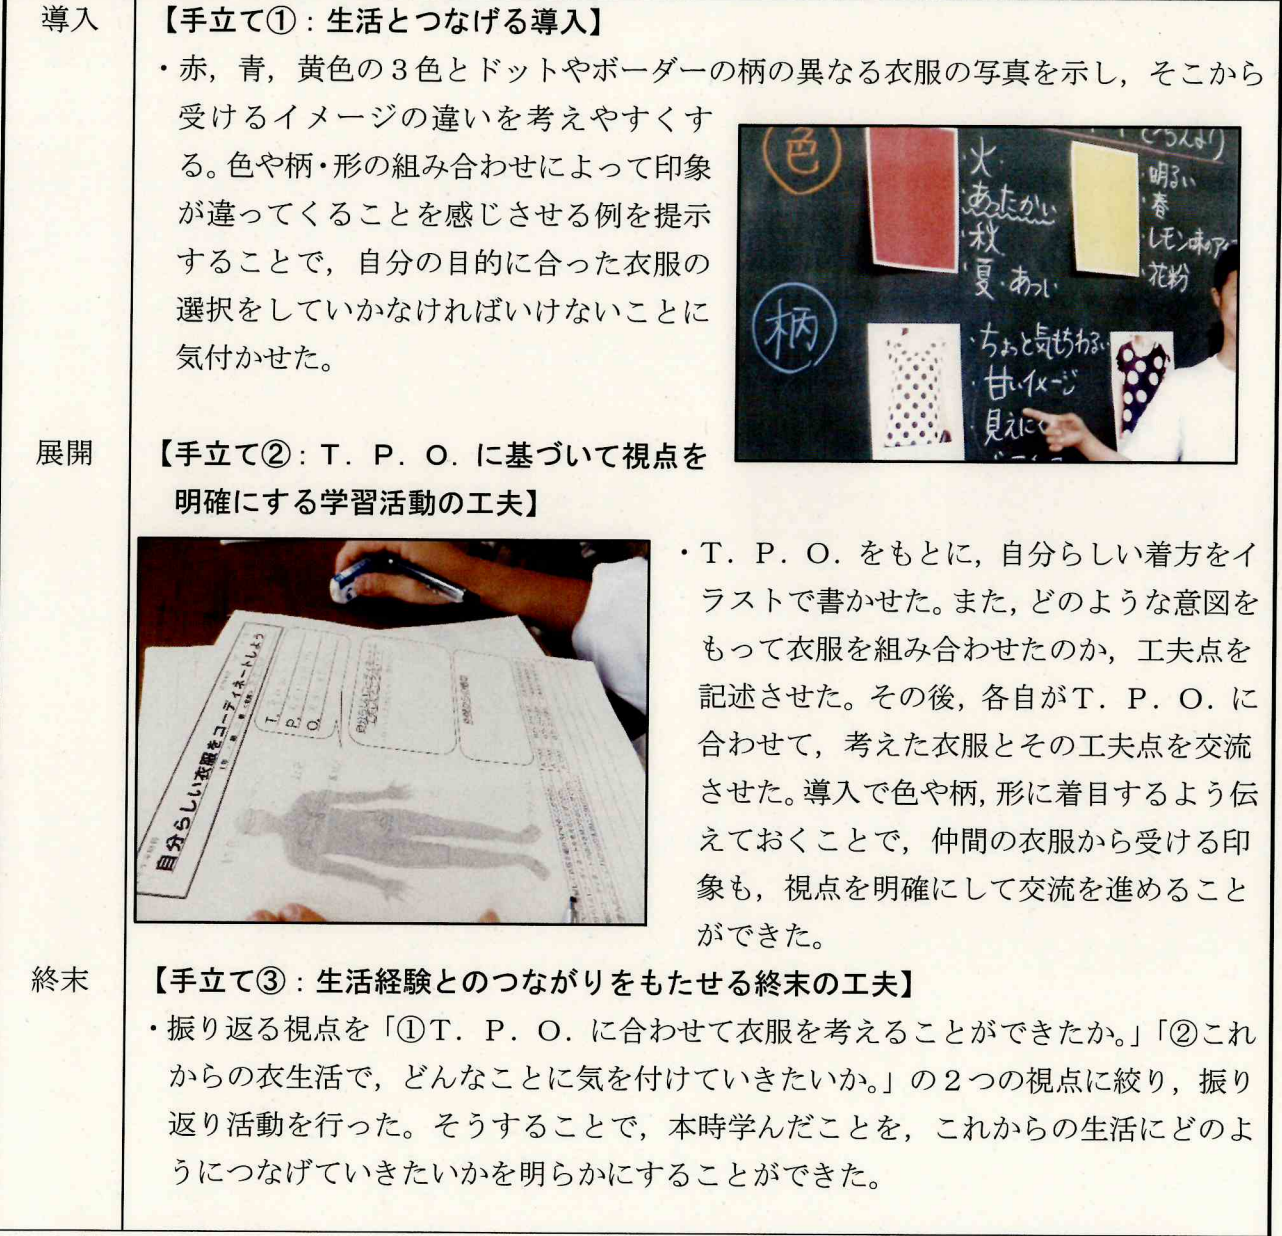 導入
【手立て①：生活とつなげる導入】
・赤，青，黄色の３色とドットやボーダーの柄の異なる衣服の写真を示し，そこから
受けるイメージの違いを考えやすくす
る。色や柄・形の組み合わせによって印象
が違ってくることを感じさせる例を提示
することで，自分の目的に合った衣服の
選択をしていかなければいけないことに
気付かせた。
色
・火
・あったかい
・秋
・夏・あつい
・明るい
・春
・レモン味のア
・花粉
柄
・ちょっと気もちわるい
・甘いイメージ
・見えにく
展開
【手立て②：Ｔ．Ｐ．Ｏ．に基づいて視点を
明確にする学習活動の工夫】
自分らしい衣服をコーディネートしよう
T.
P.
O.
・Ｔ．Ｐ．Ｏ．をもとに，自分らしい着方をイ
ラストで書かせた。また，どのような意図を
もって衣服を組み合わせたのか，工夫点を
記述させた。その後，各自がＴ．Ｐ．Ｏ．に
合わせて，考えた衣服とその工夫点を交流
させた。導入で色や柄，形に着目するよう伝
えておくことで，仲間の衣服から受ける印
象も，視点を明確にして交流を進めること
ができた。
終末
【手立て③：生活経験とのつながりをもたせる終末の工夫】
・振り返る視点を「①Ｔ．Ｐ．Ｏ．に合わせて衣服を考えることができたか。」「②これ
からの衣生活で，どんなことに気を付けていきたいか。」の２つの視点に絞り，振り
返り活動を行った。そうすることで，本時学んだことを，これからの生活にどのよ
うにつなげていきたいかを明らかにすることができた。